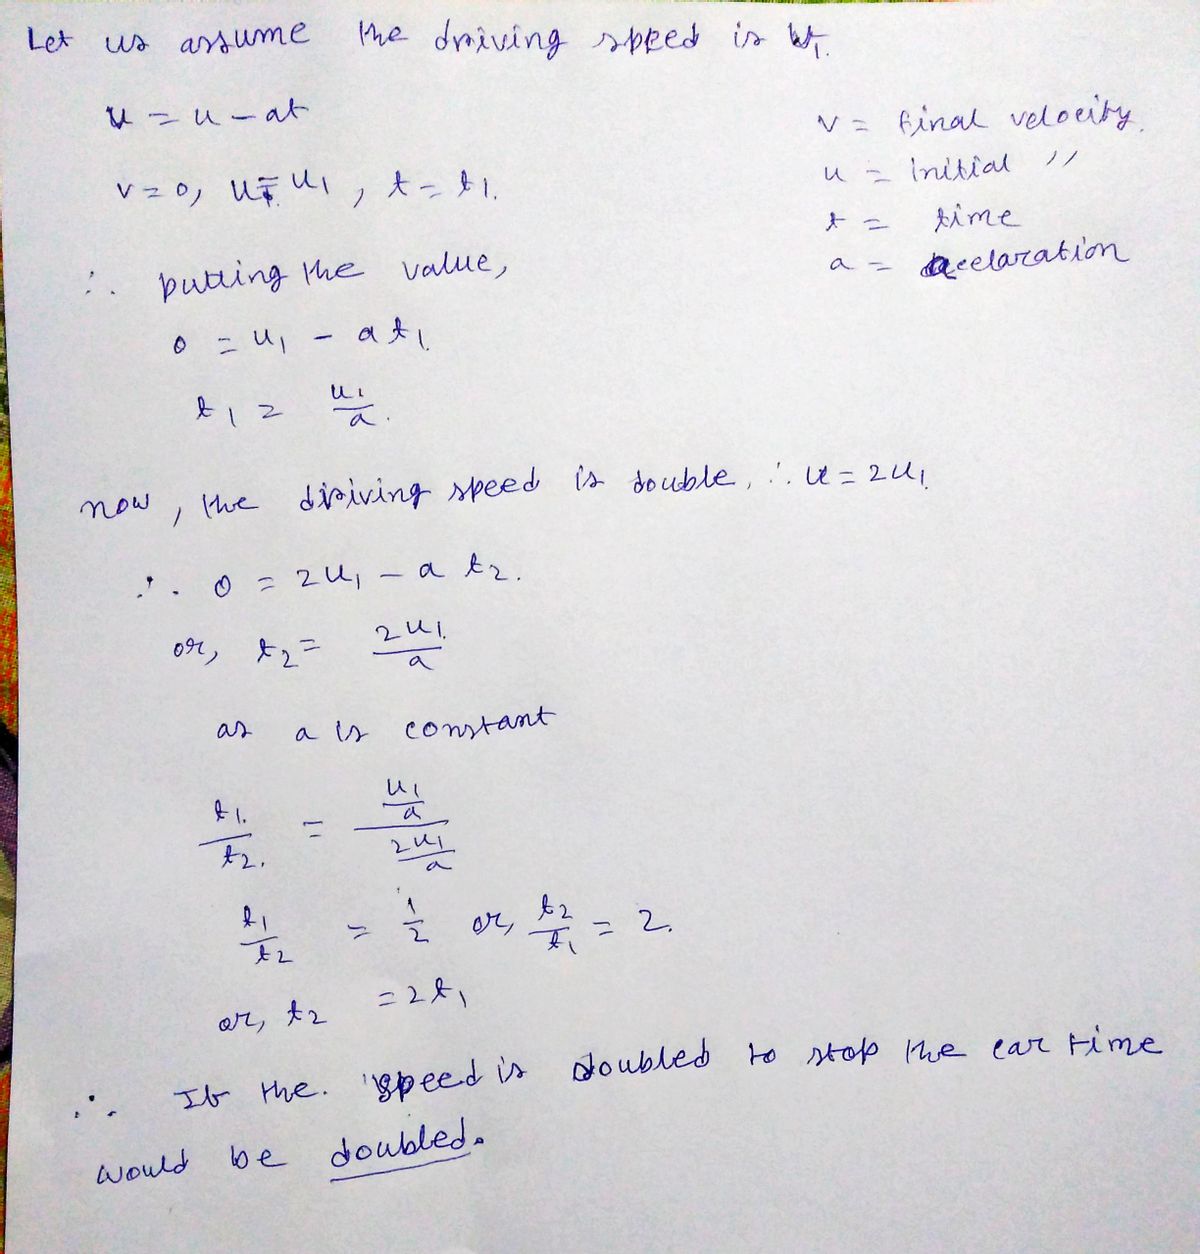 Let us assume the driving speed is u₁.
u = u - at
v = final velocity.
u = initial "
t = time
a = accelaration
v = 0, u = u₁, t = t₁.
∴ putting the value,
0 = u₁ - at₁.
t₁ = u₁/a.
now, the driving speed is double, ∴ u = 2u₁.
∴ 0 = 2u₁ - a t₂.
or, t₂ = 2u₁/a
as a is constant
t₁/t₂ = (u₁/a)/(2u₁/a)
t₁/t₂ = 1/2 or, t₂/t₁ = 2.
or, t₂ = 2t₁
∴ If the speed is doubled to stop the car time
would be doubled.